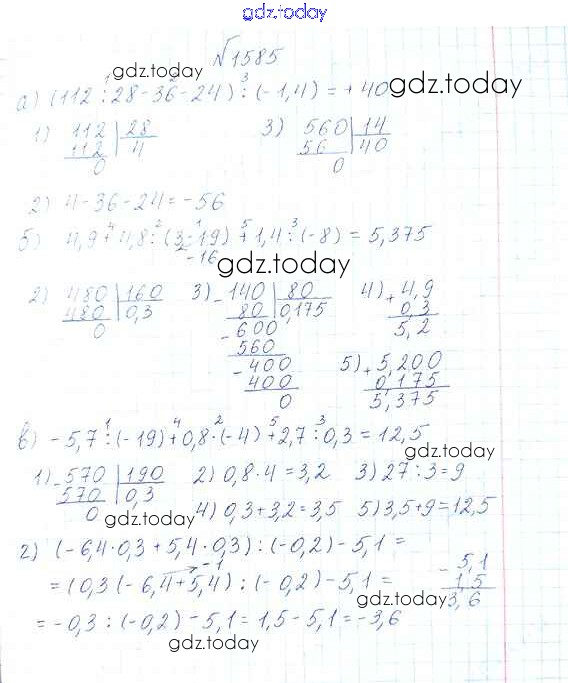 gdz.today
№1585
gdz.today
а) (112 : 28 - 36 - 24) : (-1,4) = +40 gdz.today
1) 112 | 28   3) 560 | 14
112 | 4   56 | 40
0   0
2) 4 - 36 - 24 = -56
б) 4,9 + 4,8 : (3 - 19) + 1,4 : (-8) = 5,375
-16
gdz.today
2) 480 | 160   3) -140 | 80   4) + 4,9
480 | 0,3   80 | 0,175   0,3
0   -600   5,2
560
-400   5) + 5,200
400   0,175
0   5,375
в) -5,7 : (-19) + 0,8 · (-4) + 2,7 : 0,3 = 12,5
gdz.today
1) -570 | 190   2) 0,8 · 4 = 3,2   3) 27 : 3 = 9
570 | 0,3
0   4) 0,3 + 3,2 = 3,5   5) 3,5 + 9 = 12,5
gdz.today
г) (-6,4 · 0,3 + 5,4 · 0,3) : (-0,2) - 5,1 =
-1
= (0,3 (-6,4 + 5,4) : (-0,2) - 5,1 =   - 5,1
1,5
gdz.today 3,6
= -0,3 : (-0,2) - 5,1 = 1,5 - 5,1 = -3,6
gdz.today